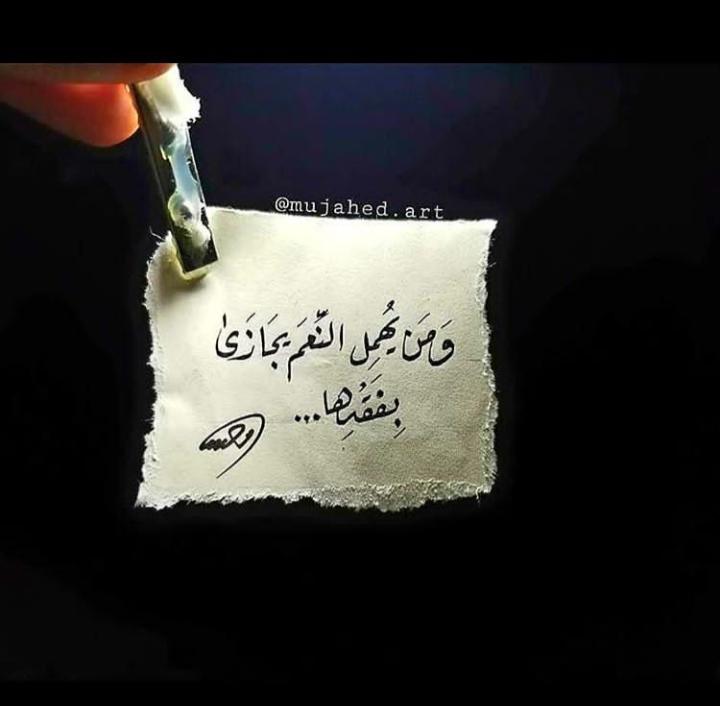 @mujahed.art
وَمَن يُهمِل النِّعَم يجَازَى
بِفَقْدِها...